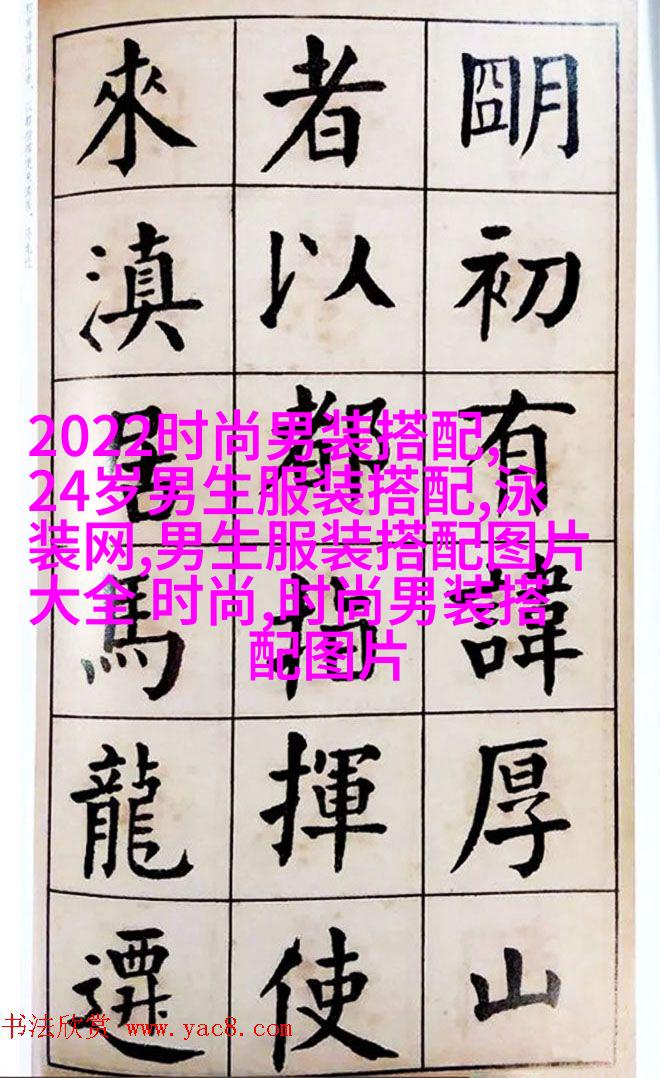 朙初有諱厚山
者以都指揮使
來滇居馬龍遷
2022时尚男装搭配,
24岁男生服装搭配,泳
装网,男生服装搭配图片
大全 时尚,时尚男装搭
配图片
书法欣赏 www.yac8.com